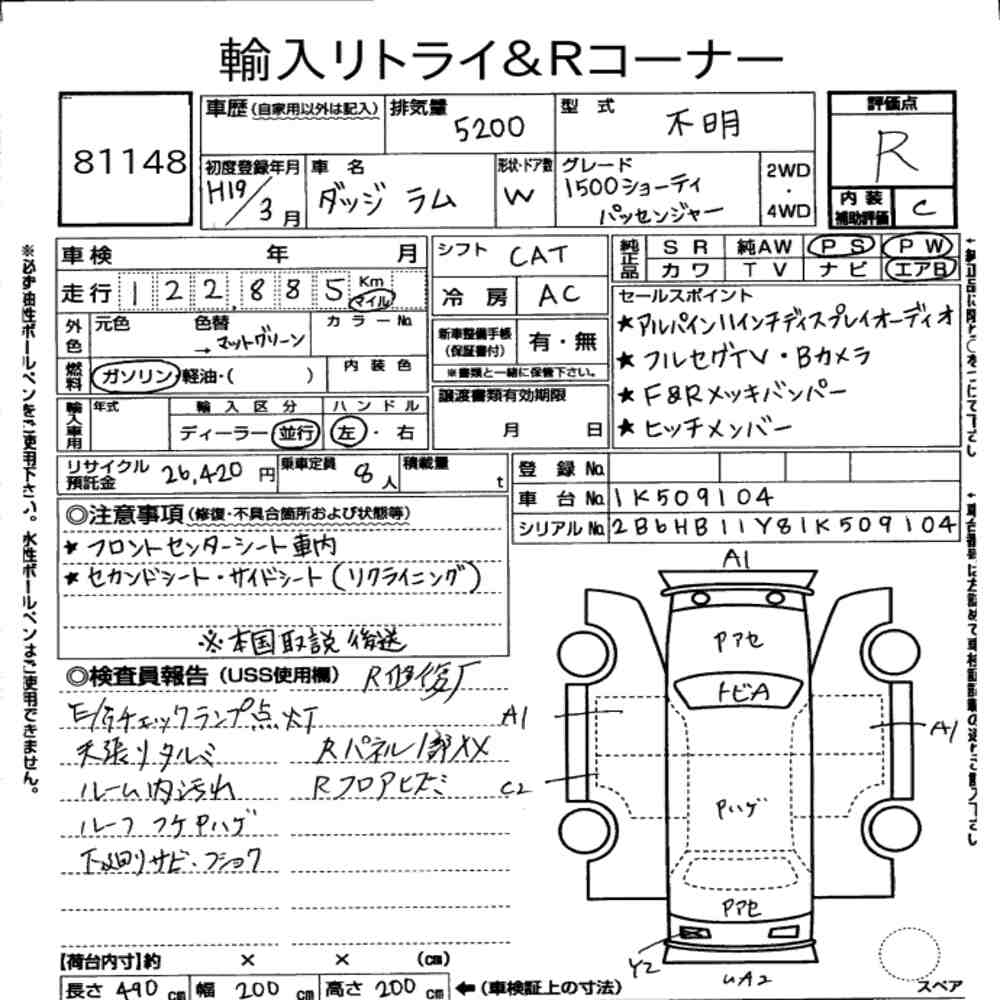 輸入リトライ&Rコーナー
81148
車歴(自家用以外は記入)
排気量 5200
型式 不明
評価点 R
初度登録年月 H19/3月
車名 ダッジ ラム
形状・ドア数 W
グレード 1500ショーティ パッセンジャー
2WD・4WD
内装補助評価 C
車検 年 月
走行 122,885 Km マイル
外色 元色 色替→マットグリーン カラーNo.
燃料 ガソリン・軽油・( )
内装色
輸入車用 年式 輸入区分 ディーラー・並行 ハンドル 左・右
シフト CAT
冷房 AC
新車整備手帳(保証書付) 有・無
※書類と一緒に保管下さい。
譲渡書類有効期限 月 日
純正品 SR 純AW PS PW
カワ TV ナビ エアB
セールスポイント
★アルパイン11インチディスプレイオーディオ
★フルセグTV・Bカメラ
★F&Rメッキバンパー
★ヒッチメンバー
リサイクル預託金 26,420円
乗車定員 8人
積載量 t
登録No.
車台No. 1K509104
シリアルNo. 2B6HB11Y81K509104
◎注意事項(修復・不具合箇所および状態等)
★フロントセンターシート車内
★セカンドシート・サイドシート(リクライニング)
※本国取説後送
◎検査員報告(USS使用欄) R修復歴
E/Gチェックランプ点灯
天張りタルミ Rパネル1部XX
ルーム内汚れ Rフロアヒズミ
ルーフ フケPハゲ
下廻りサビ・フショク
A1
Pアセ
トビA
A1
A1
C2
Pハゲ
Pアセ
Y2
UA2
スペア
【荷台内寸】約 × × (cm)
長さ 490cm 幅 200cm 高さ 200cm ←(車検証上の寸法)
※必ず油性ボールペンをご使用下さい。水性ボールペンはご使用できません。